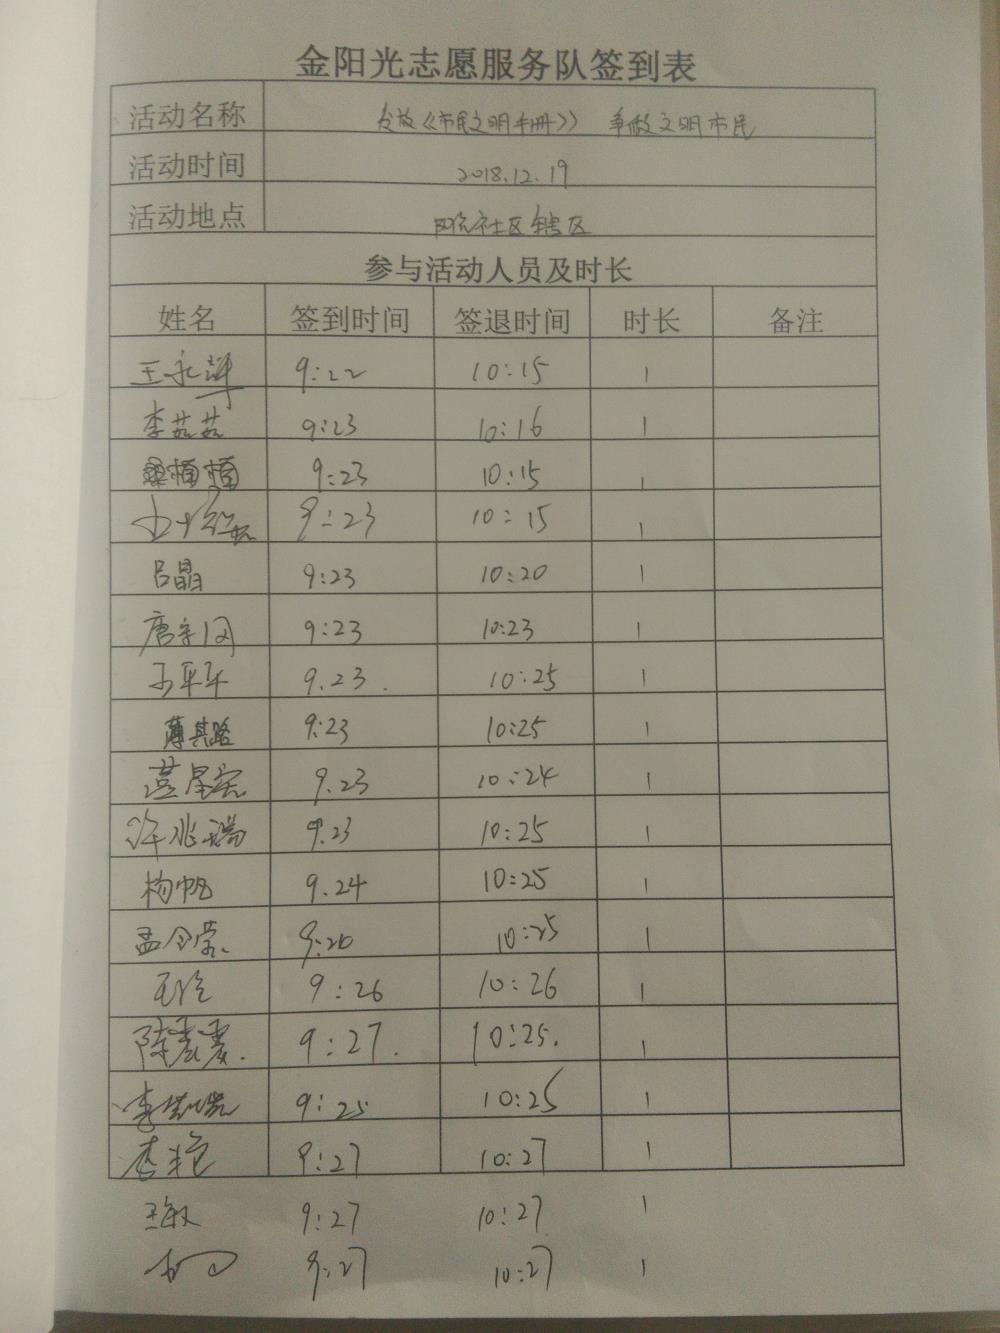 金阳光志愿服务队签到表
活动名称 发放《市民文明手册》 争做文明市民
活动时间 2018.12.19
活动地点 阳光社区辖区
参与活动人员及时长
姓名 签到时间 签退时间 时长 备注
王永萍 9:22 10:15 1
李茹茹 9:23 10:16 1
梁楠楠 9:23 10:15 1
9:23 10:15 1
吕晶 9:23 10:20 1
唐宗润 9:23 10:23 1
于平平 9.23. 10:25 1
薄其路 9:23 10:25 1
9.23 10:24 1
许兆瑞 9.23 10:25 1
杨帆 9.24 10:25 1
孟令蒙 9:26 10:25 1
王玲 9:26 10:26 1
陈震震. 9:27. 10:25. 1
9:25 10:25 1
李艳 9:27 10:27 1
王敏 9:27 10:27 1
9:27 10:27 1